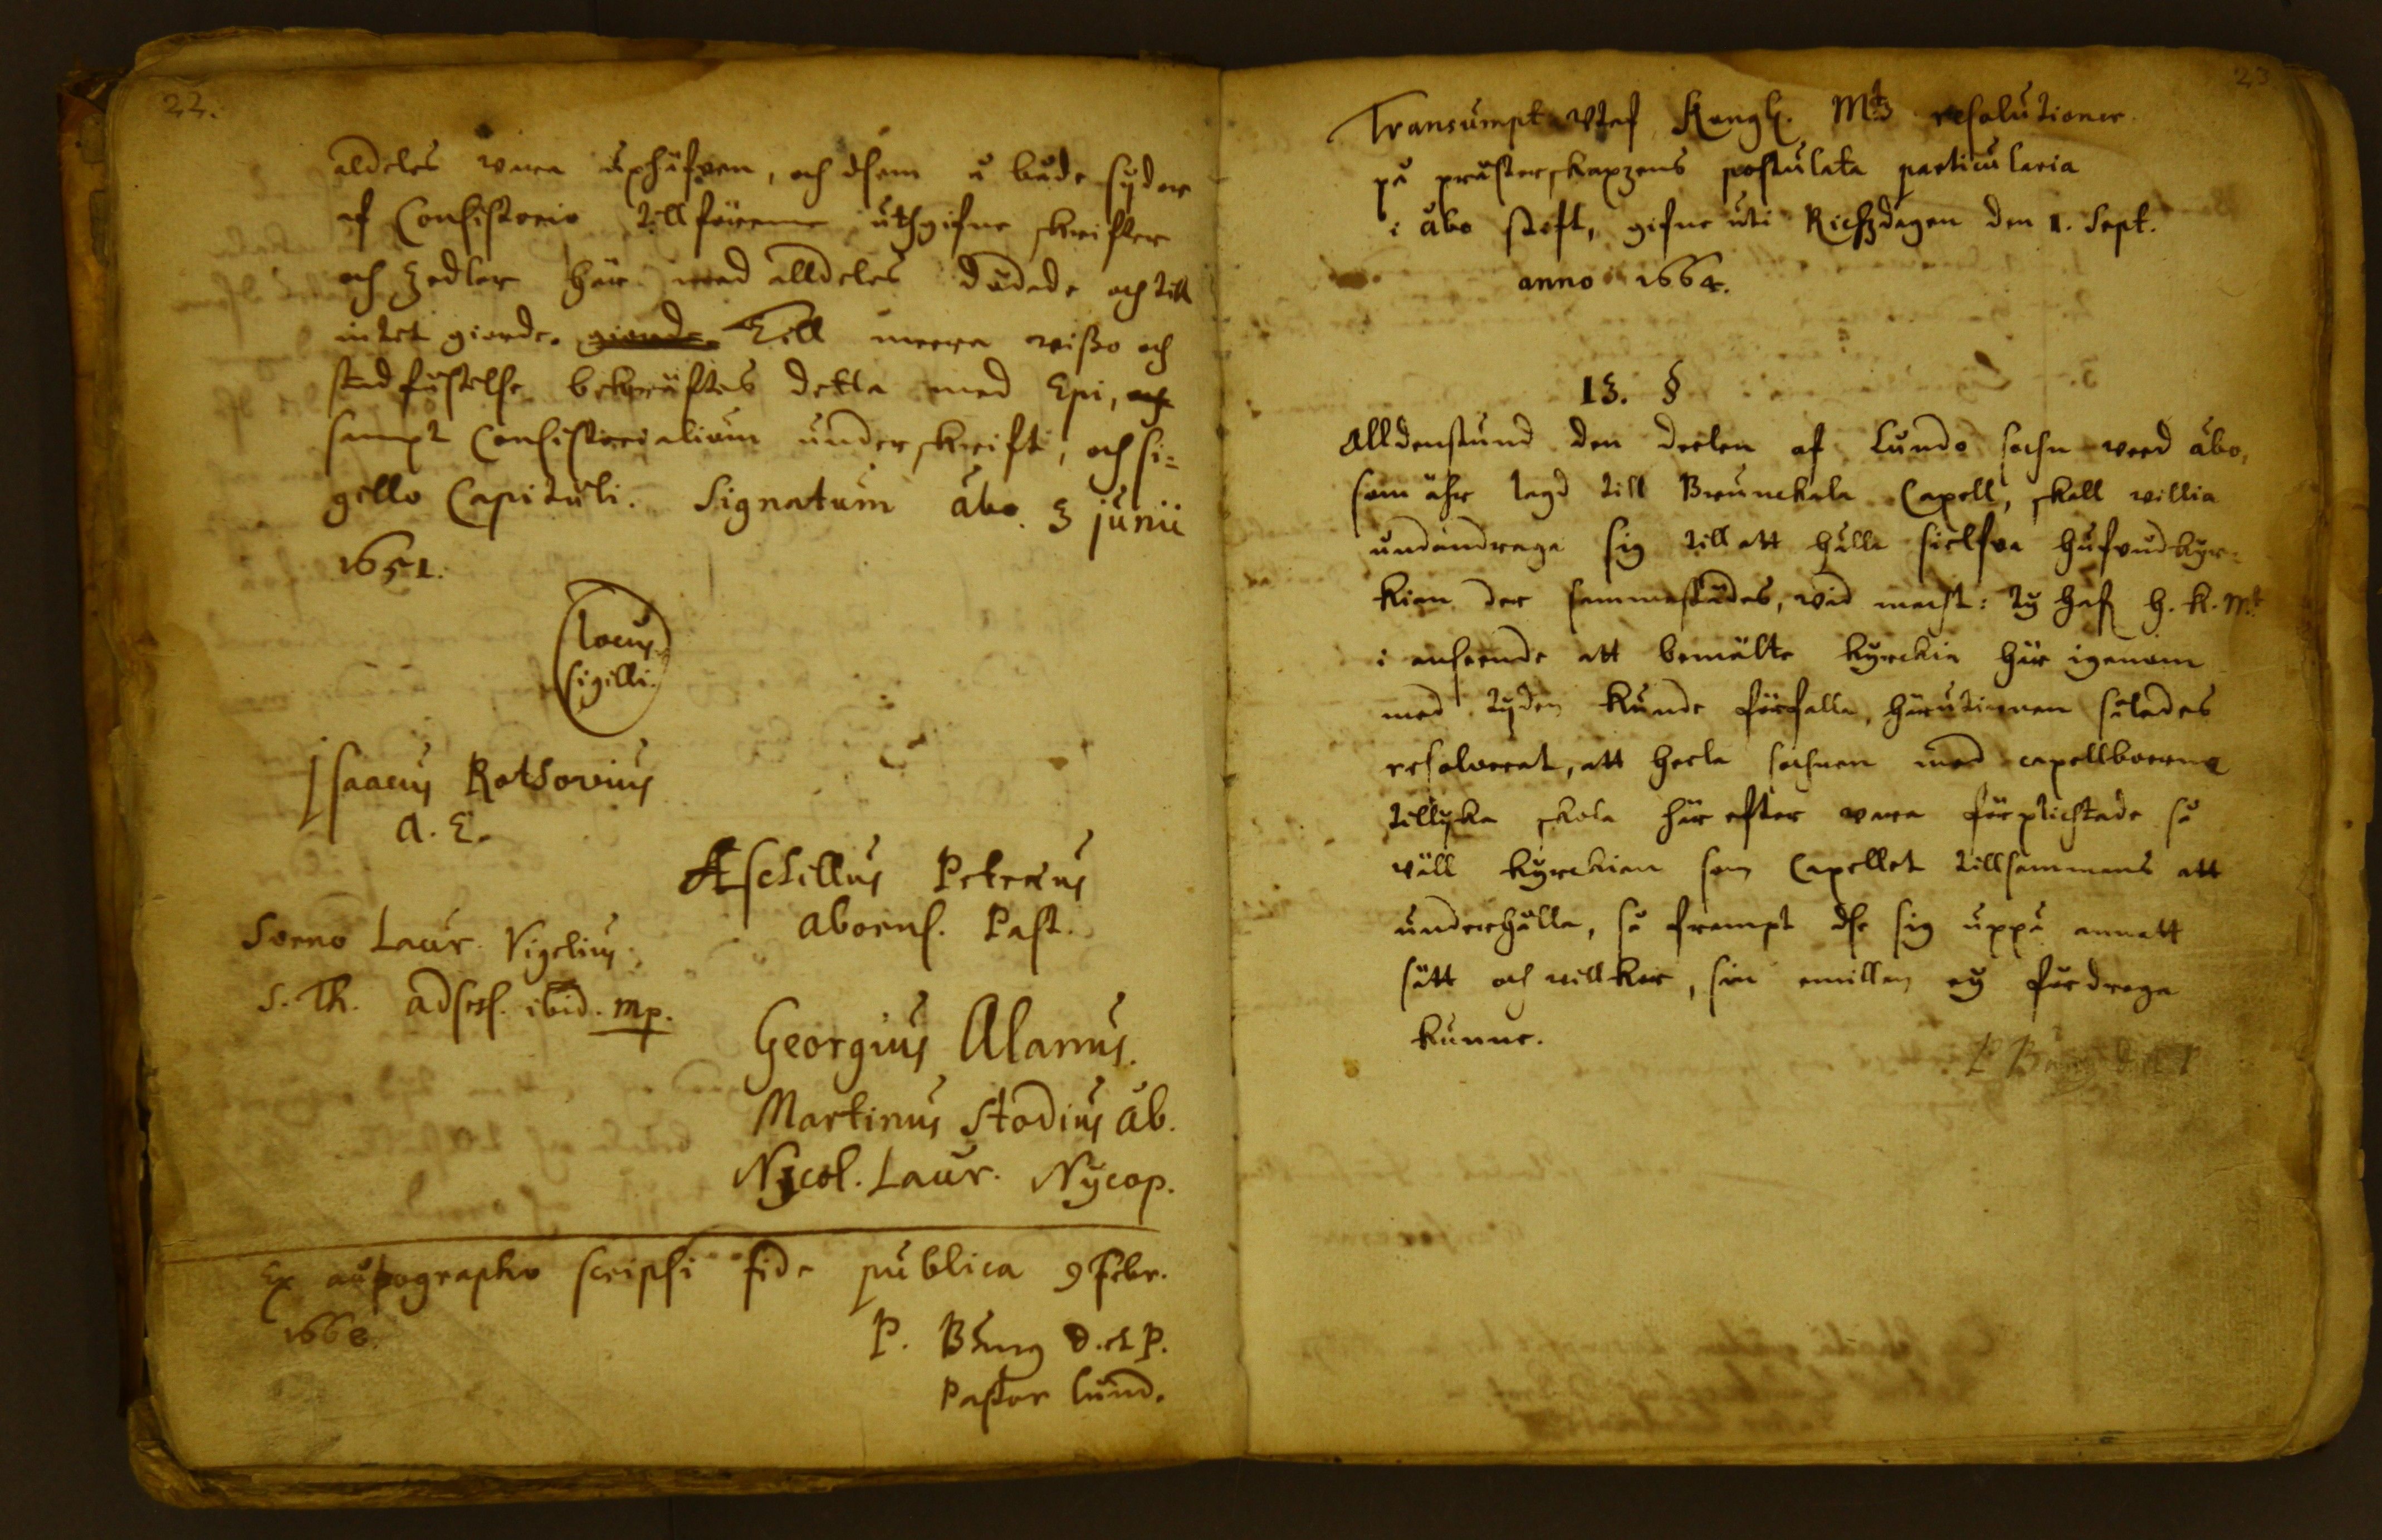 22.
aldeles wara uphäfven, och them å både sydor
af Consistorio tillförenne uthgifne skrifter
och Zedler här med alldeles dödade och till
intet giorde. giorde. Till meera wißo och
stadfästelse bekräftes detta med Epi, och
sampt Consistorialium underskrift, och si=
gillo Capituli. Signatum Åbo. 3 junii
1651.
Locus
sigilli.
Isaacus Rothovius
A. E.
Aschillus Petræus
Aboens. Past.
Sveno Laur. Vigelius
S. Th. adsess. ibid. mp.
Georgius Alanus.
Martinus Stodius Ab.
Nycol. Laur. Nycop.
Ex autographo scripsi fide publica 9 Febr.
1668.
P. Bång D. et P.
Pastor Lund.
23
Transumpt utaf Kongl. Mtz resolutioner
på prästerskapzens postulata particularia
i Åbo stift, gifne uti Richzdagen den 1. Sept.
anno 1664.
13. §
Alldenstund den deelen af Lundo sochn weed Åbo,
som ähr lagd till Brunckala Capell, skall willia
undandraga sig till att hålla sielfva hufvudkyr-
kian der sammastädes, wid macht: ty haf H. K. Mt
i anseende att bemälte kyrckia här igenom
med tyden kunde förfalla, härutinnan således
resolverat, att heela sochnen med capellboerna
tillyka skola här efter wara förplichtade så
wäll kyrckian som Capellet tillsammans att
underhålla, så frampt the sig uppå annatt
sätt och willkor, sin emillan ey fördraga
kunne.
P Bång D et P